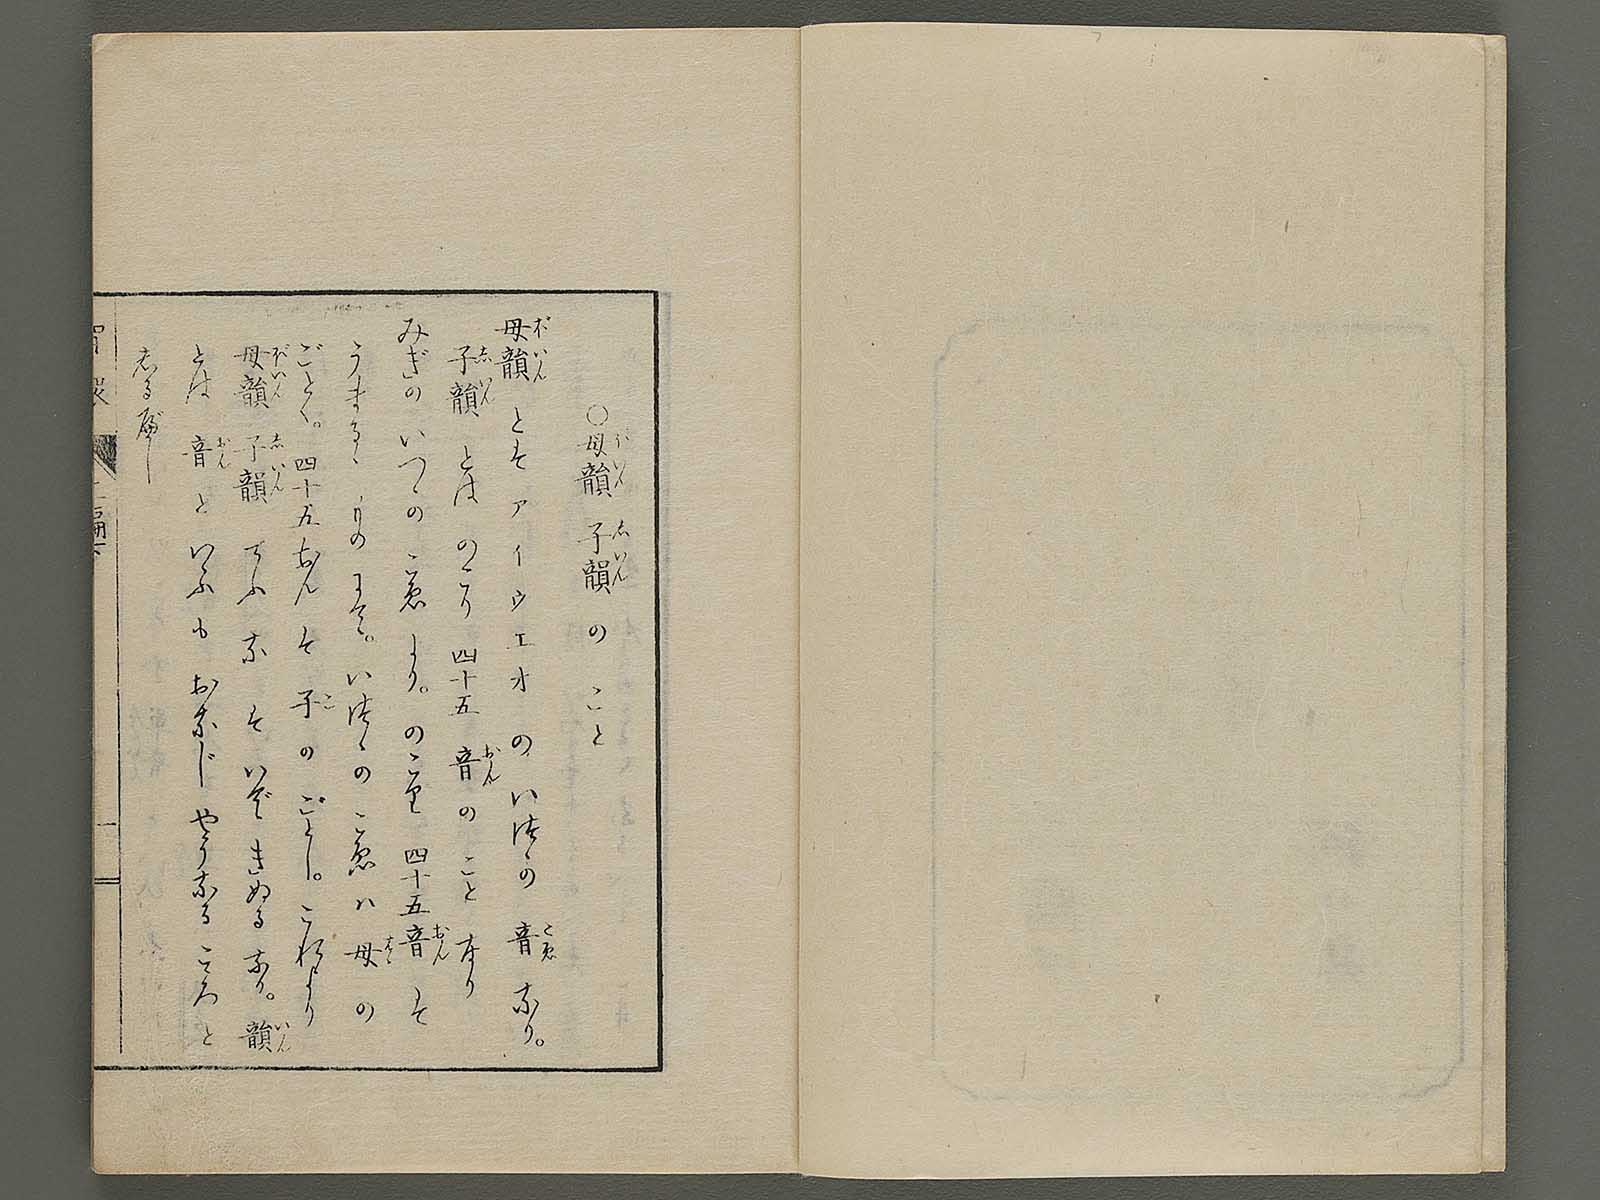 ○母韻子韻のこと
母韻とはアイウエオのいつゝの音なり。
子韻とはのこり四十五音のことなり
みぎのいつゝのこゑより。のこり四十五音は
うまるゝものにて。いつゝのこゑハ母の
ごとく。四十五おんは子のごとし。これより
母韻子韻てふなはいできぬるなり。韻
とは音といふもおなじやうなるこゝろと
志るべし